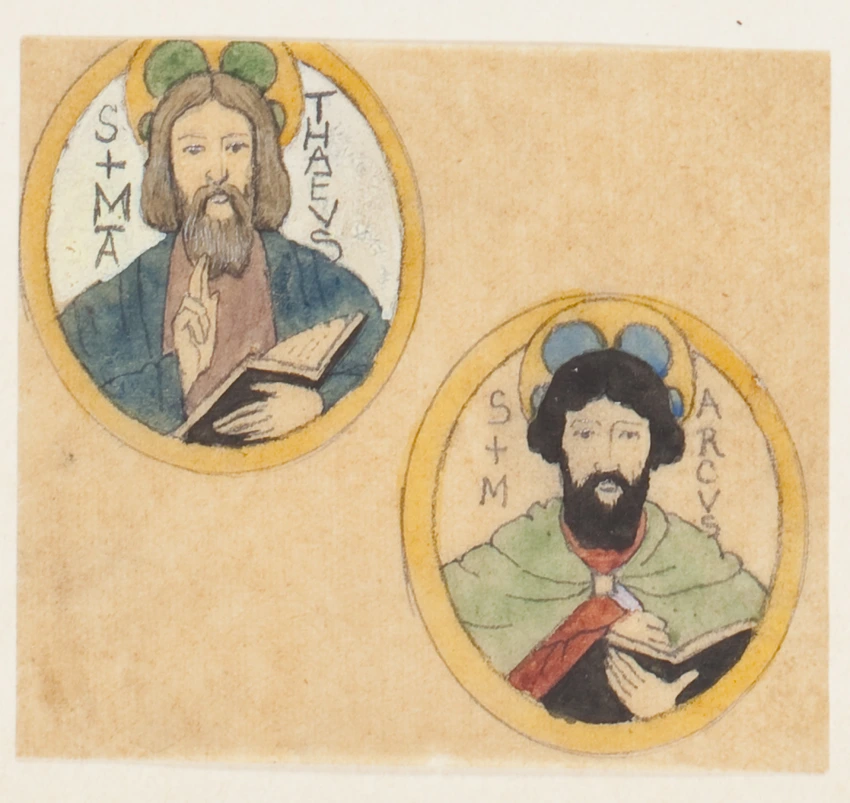 S+MA
THAEVS
S+M
ARCVS